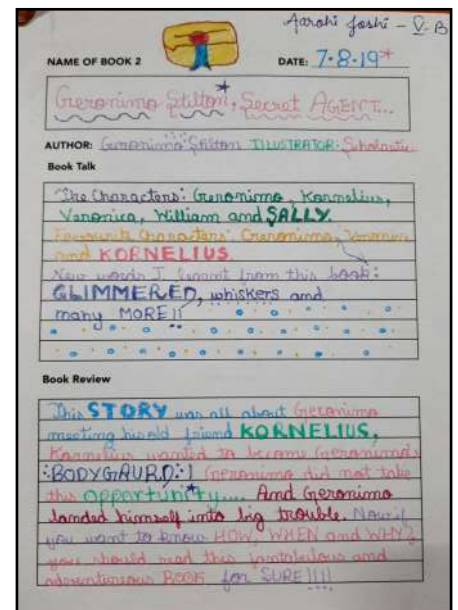 Aarohi Joshi - V-B
NAME OF BOOK 2
DATE: 7.8.19
Geronimo Stilton, Secret AGENT...
AUTHOR: Geronimo Stilton ILLUSTRATOR: Scholastic
Book Talk
The Characters: Geronimo, Kornelius,
Veronica, William and SALLY.
Favourite Characters: Geronimo, Veronica
and KORNELIUS.
New words I learnt from this book:
GLIMMERED, whiskers and
many MORE!!
Book Review
This STORY was all about Geronimo
meeting his old friend KORNELIUS,
Kornelius wanted to become Geronimo's
BODYGAURD! Geronimo did not take
this opportunity.... And Geronimo
landed himself into big trouble. Now if
you want to know HOW, WHEN and WHY?
you should read this fantabulous and
adventurous BOOK for SURE!!!!